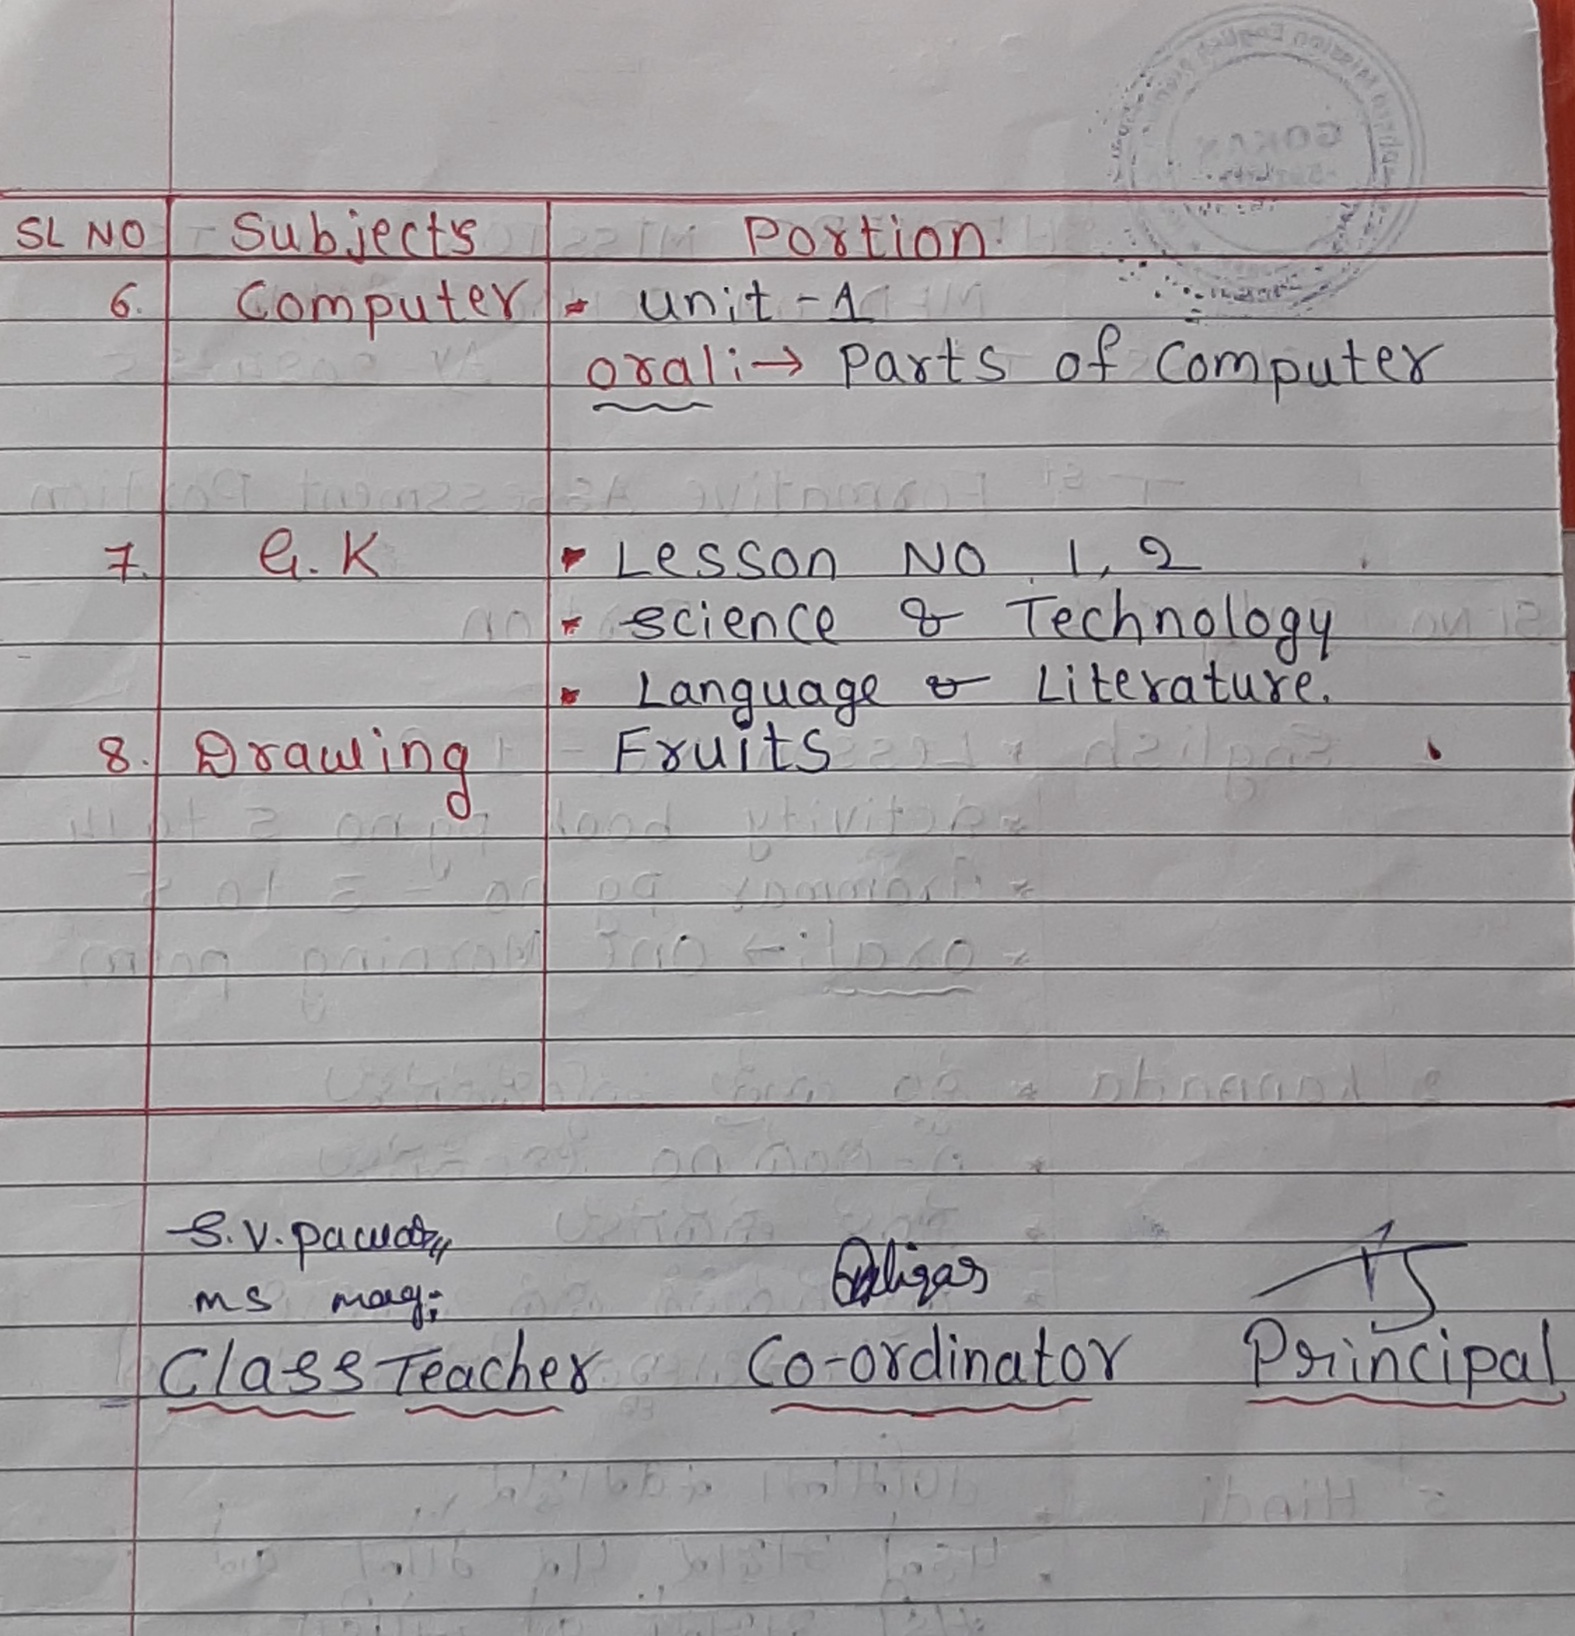 SL NO Subjects Portion
6. Computer * unit - 1
oral:→ Parts of Computer
7. G.K * Lesson NO 1, 2
* Science & Technology
* Language & Literature.
8. Drawing Fruits
S.V.
ms
Class Teacher Co-ordinator Principal